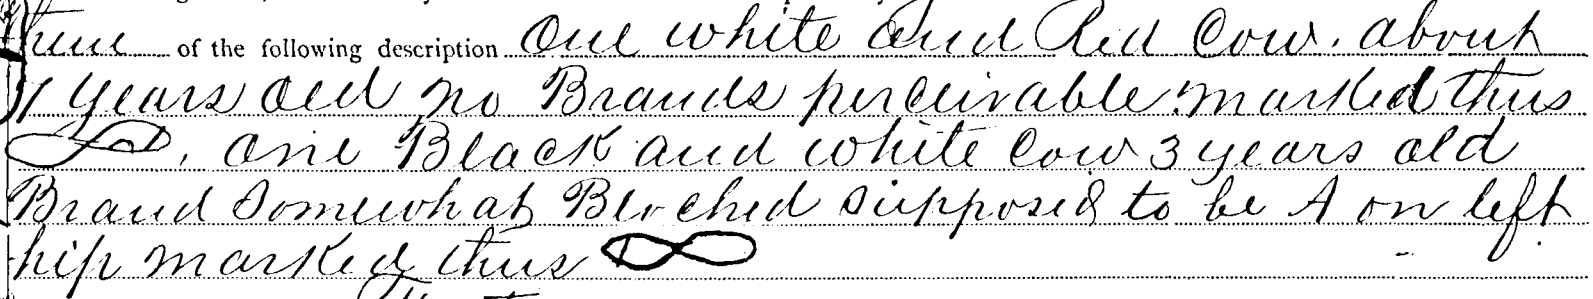 them of the following description One white and Red Cow. about
7 years old no Brands perceivable. marked thus
. one Black and white Cow 3 years old
Brand Somewhat Bloched supposed to be A on left
hip marked thus